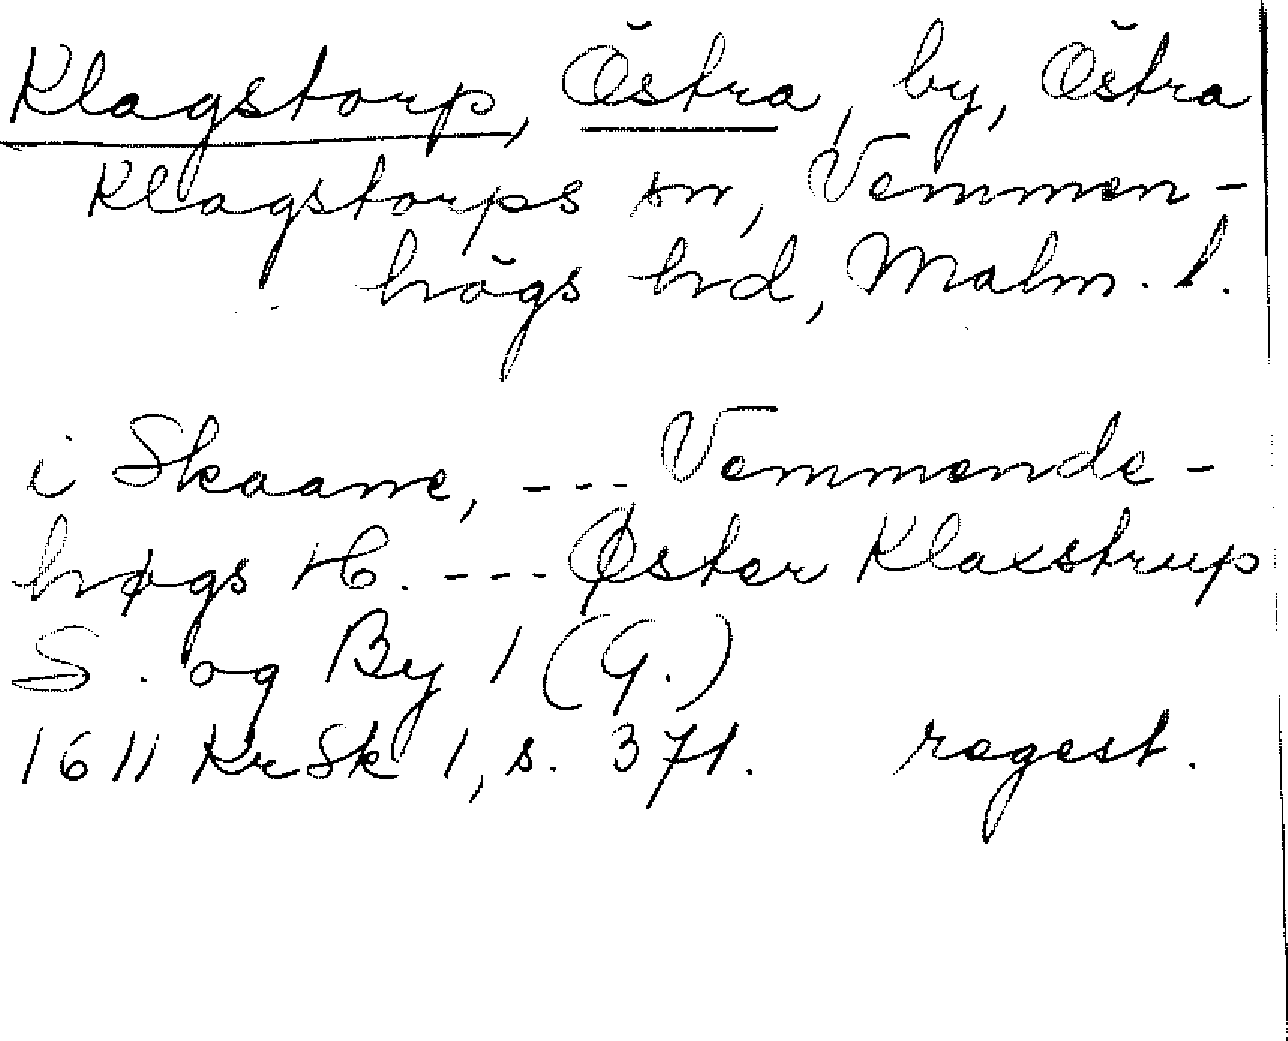 Klagstorp, Östra, by, Östra
Klagstorps sn, Vemmen-
högs hd, Malm. l.
i Skaane, --- Vemmende-
høgs H. --- Øster Klaxstrup
S. og By 1 (G.)
1611 KrSk 1, s. 371. regest.